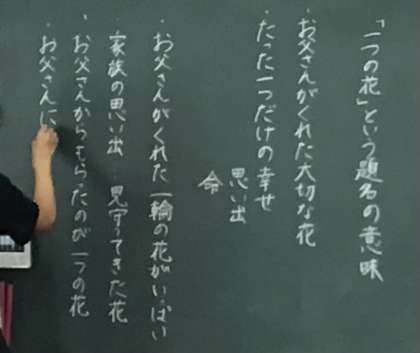 「一つの花」という題名の意味
・お父さんがくれた大切な花
・たった一つだけの幸せ
思い出
命
・お父さんがくれた一輪の花がいっぱい
・家族の思い出…見守ってきた花
・お父さんからもらったのが一つの花
・お父さんに